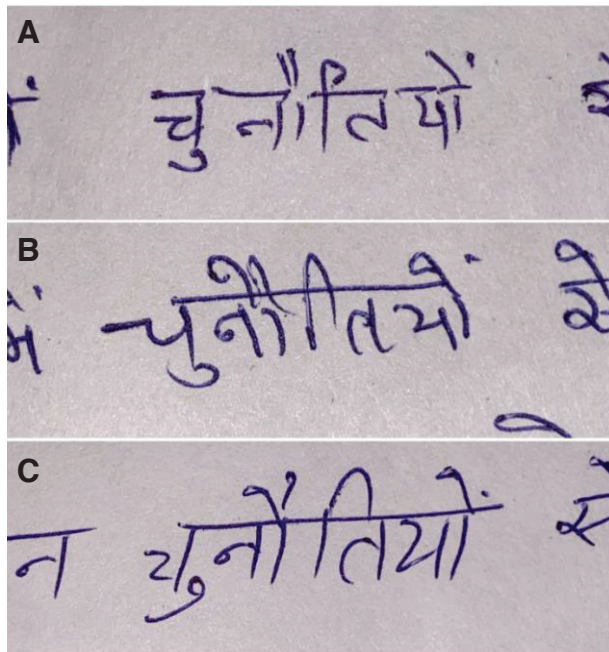 A
चुनौतियों
B
में चुनौतियों से
C
न चुनौतियों से